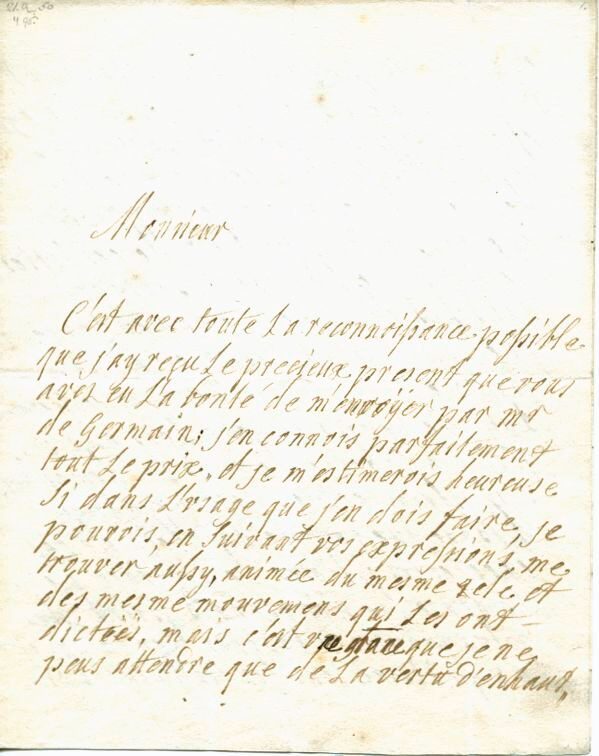 Monsieur
C'est avec toute La reconnoissance possible
que j'ay reçu Le precieux present que vous
avez eu La bonté de m'envoÿer par mr
de Germain; j'en connois parfaitement
tout Le prix, et je m'estimerois heureuse
si dans L'usage que j'en dois faire, je
pourois, en suivant vos expressions, me
trouver aussy, animée du mesme zele et
des mesme mouvemens qui Les ont
dictées, mais c'est une grace que je ne
peus attendre que de La vertu d'enhaut,